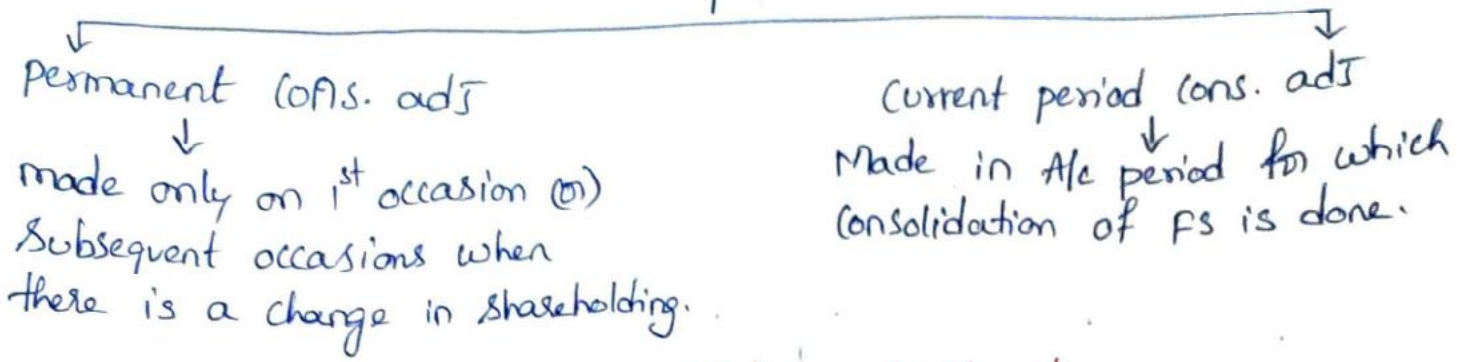 Permanent cons. adJ
made only on 1st occasion (or)
Subsequent occasions when
there is a change in shareholding.
Current period cons. adJ
Made in A/c period for which
Consolidation of FS is done.